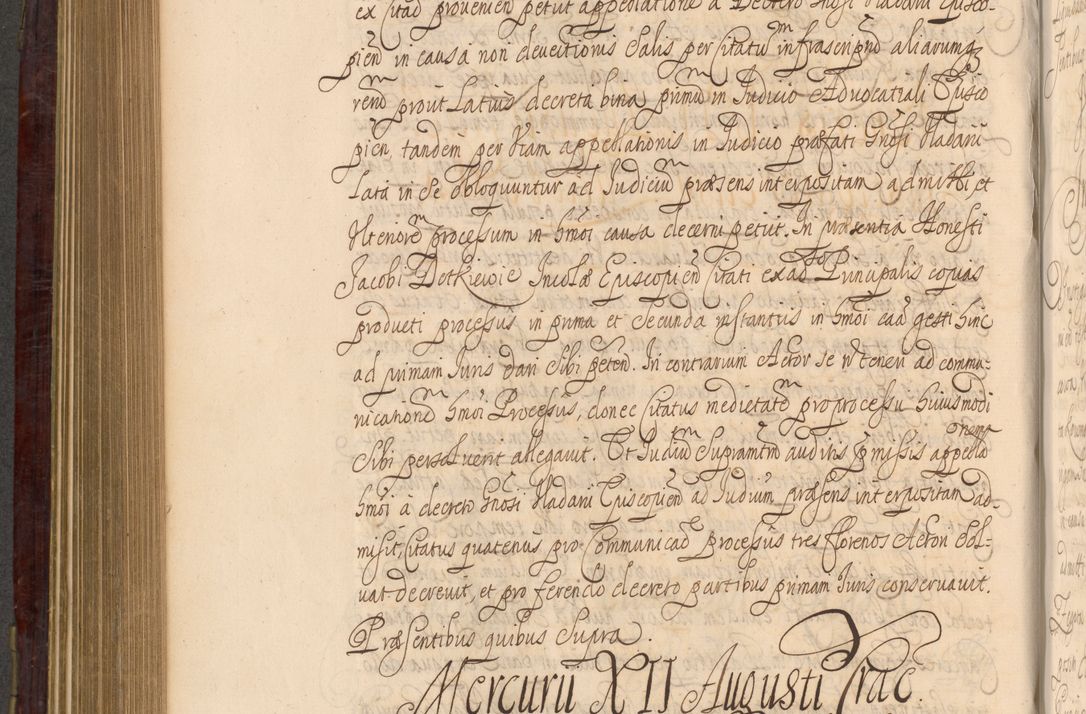 ex Citad provenien petut appellatione a Decreto Gnosi Vladarii Episco-
pien in causa non devectionis Salis per Citatum infrascriptum aliarumq
rerum prout Latius decreta bina primum in Judicio Advocatiali Episco
pien tandem per viam appellationis in Judicio præfati Gnosi Vladarii
Lata in se obloquuntur ad Judicium præsens interpositam admitti et
Ulteriorem processum in hmoi causa decerni petut. In præsentia Honesti
Jacobi Dotkiewie Incolæ Episcopien Citati ex adso Principalis copias
producti processus in prima et secunda instantiis in hmoi caã gesti hinc
ad primam Juris dari Sibi peten. In contrarium Actor se n teneri ad commu-
nicationem hmoi Processus, donec Citatus medietatem pro processu huiusmodi
Sibi persolverit allegavit. Et Judicium Supramtm auditis præmissis appellanem
hmoi à decreto Gnosi Vladarii Episcopien ad Judicium præsens interpositam ad-
misit, Citatus quatenus pro Communicad processus tres florenos Actori Sol-
vat decrevit, et pro ferendo decreto partibus primam Juris conservavit.
Præsentibus quibus Supra.
Mercurii XII Augusti Crac.